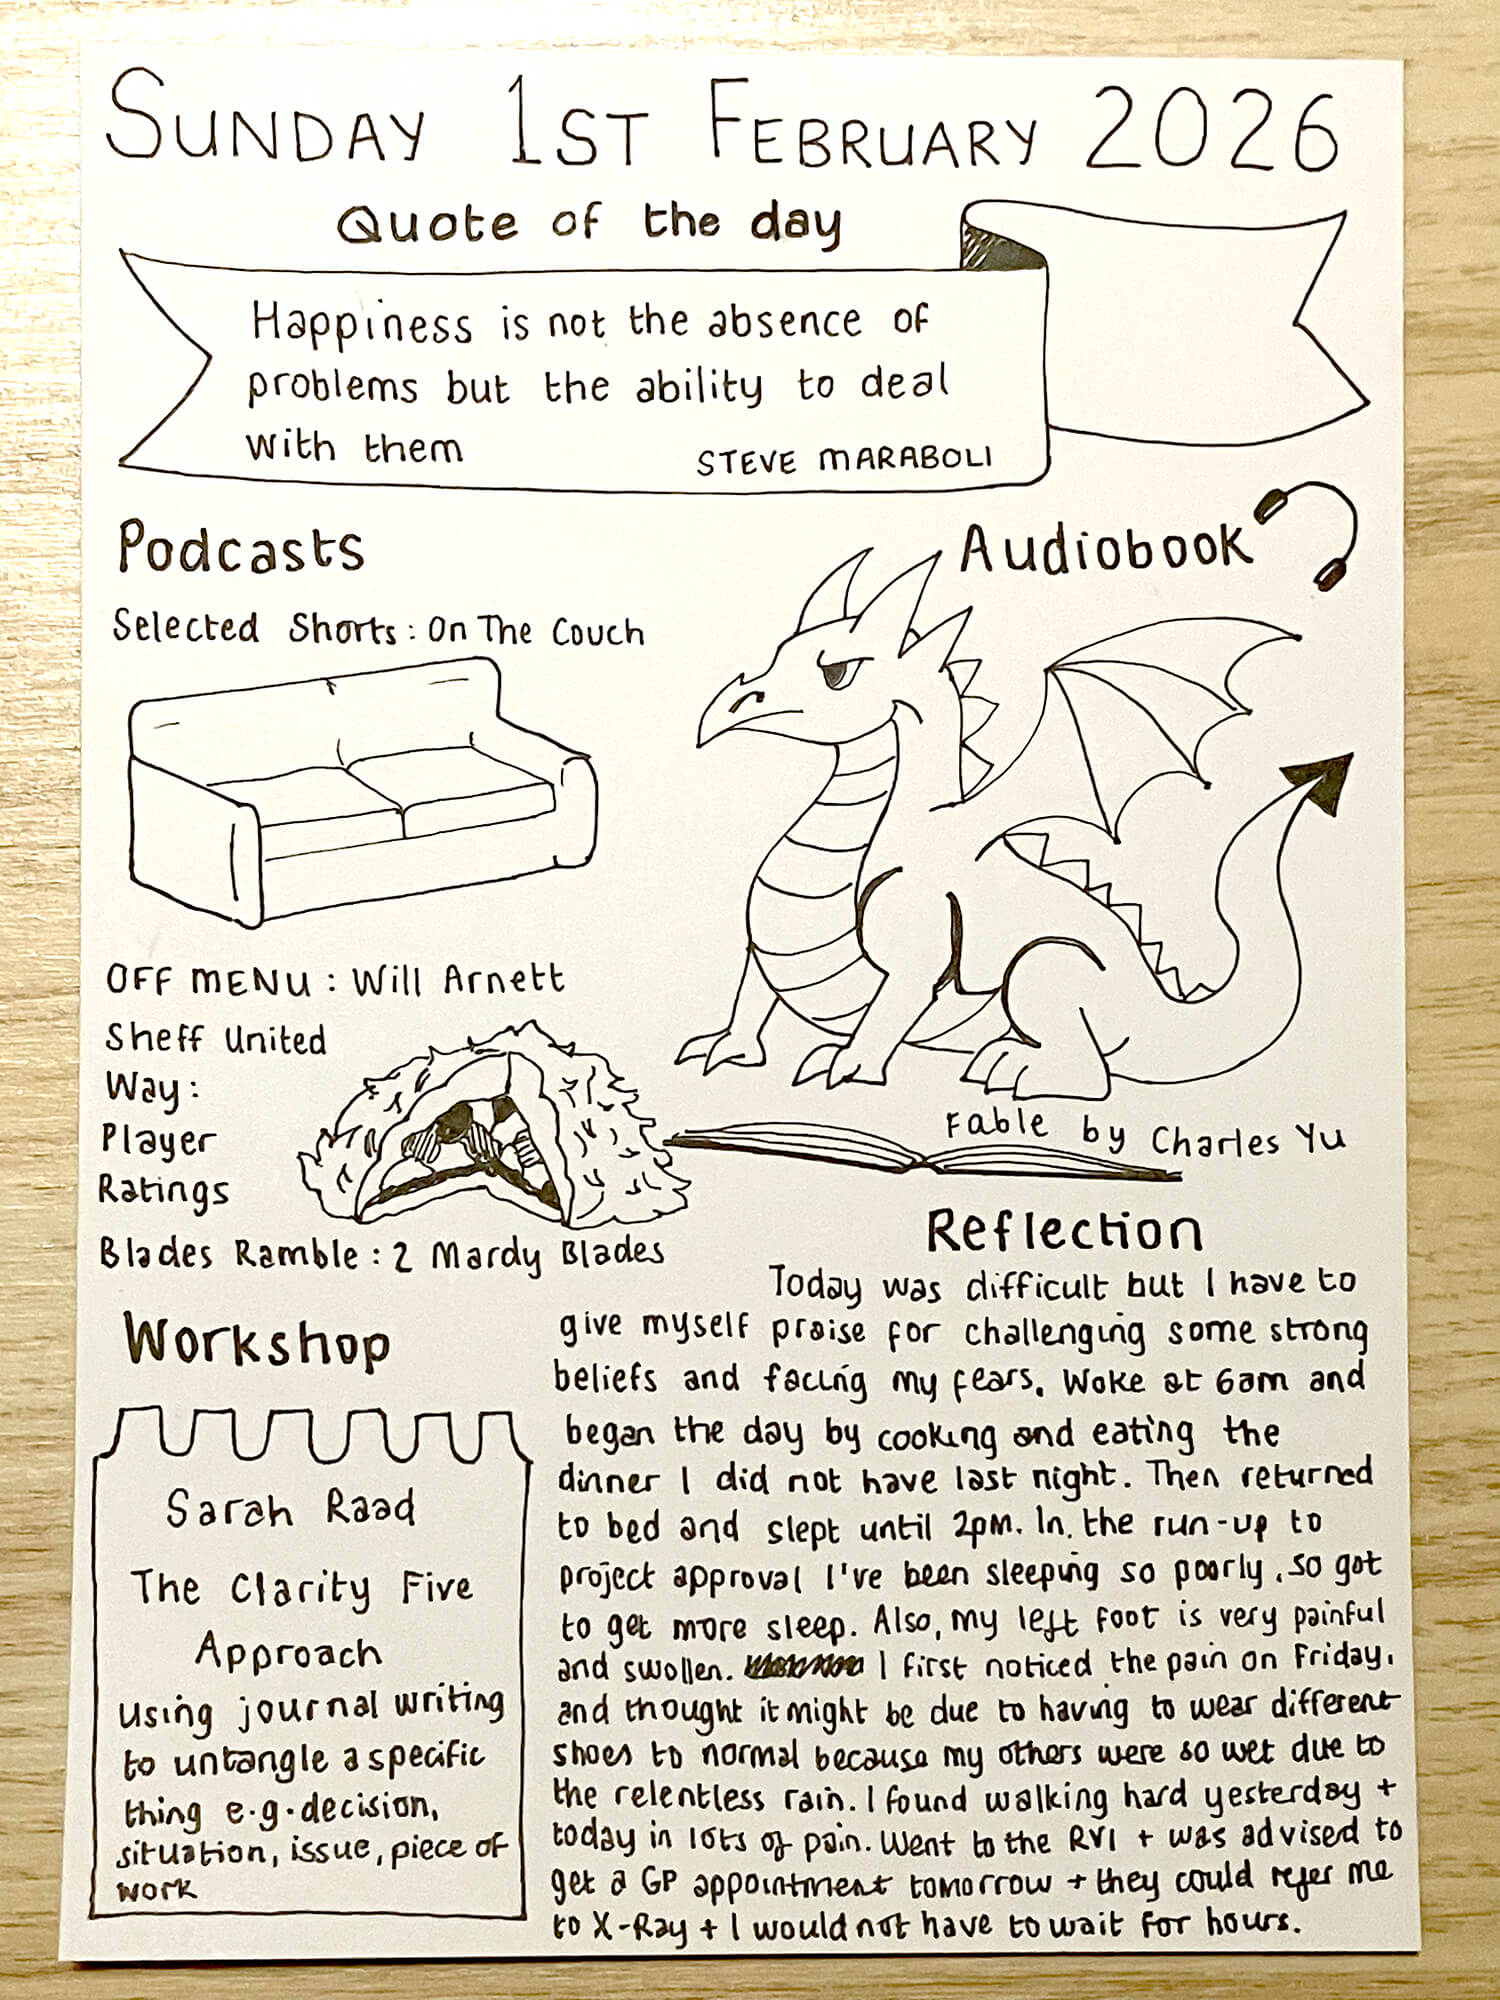 SUNDAY 1ST FEBRUARY 2026
Quote of the day
Happiness is not the absence of
problems but the ability to deal
with them
STEVE MARABOLI
Podcasts
Selected Shorts: On The Couch
OFF MENU: Will Arnett
Sheff United
Way:
Player
Ratings
Blades Ramble: 2 Mardy Blades
Audiobook
Fable by Charles Yu
Workshop
Sarah Raad
The Clarity Five
Approach
using journal writing
to untangle a specific
thing e.g. decision,
situation, issue, piece of
work
Reflection
Today was difficult but I have to
give myself praise for challenging some strong
beliefs and facing my fears. Woke at 6am and
began the day by cooking and eating the
dinner I did not have last night. Then returned
to bed and slept until 2pm. In the run-up to
project approval I've been sleeping so poorly, so got
to get more sleep. Also, my left foot is very painful
and swollen. I first noticed the pain on Friday,
and thought it might be due to having to wear different
shoes to normal because my others were so wet due to
the relentless rain. I found walking hard yesterday +
today in lots of pain. Went to the RVI + was advised to
get a GP appointment tomorrow + they could refer me
to X-Ray + I would not have to wait for hours.